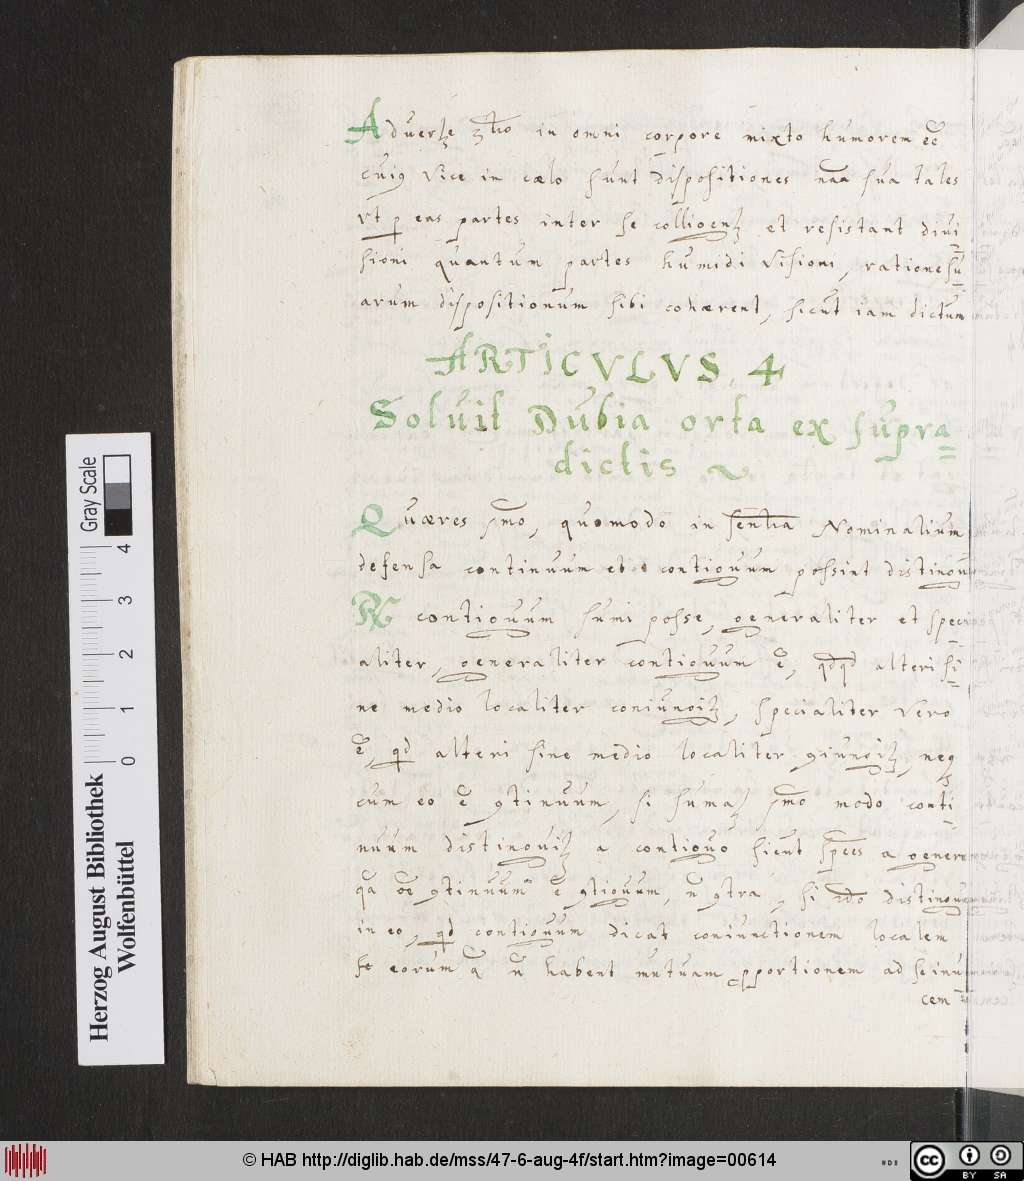 Adverte 3tio in omni corpore mixto humorem ēē
cuiq vice in cælo sunt dispositiones nāa sua tales
vt p eas partes inter se et resistant divi
sioni quantum partes humidi visioni, ratione su
arum dispositionum sibi cohærent, sicut iam dictum
ARTICVLVS 4
Soluit Dubia orta ex supra
dictis
Quæres pmo, quomodo in sentia Nominalium
defensa continuum et contiguum possint distingu
R contiguum sumi posse, generaliter et speci
aliter, generaliter contiguum ē, qdqd alteri si
ne medio localiter coniungitz, specialiter vero
ē, qd alteri sine medio localiter 9iungitz, neq
cum eo ē 9tinuum, si sumaz pmo modo conti
nuum distinguitz a contiguo sicut spēēs a gener
qa ōē 9tinuum ē 9tiguum, n̄ 9tra, si 2do distingu
in eo, qd contiguum dicat coniunctionem localem
eorum q n̄ habent mutuam pportionem ad seinui
cem
Gray Scale
0 1 2 3 4
Herzog August Bibliothek
Wolfenbüttel
© HAB http://diglib.hab.de/mss/47-6-aug-4f/start.htm?image=00614
cc BY SA